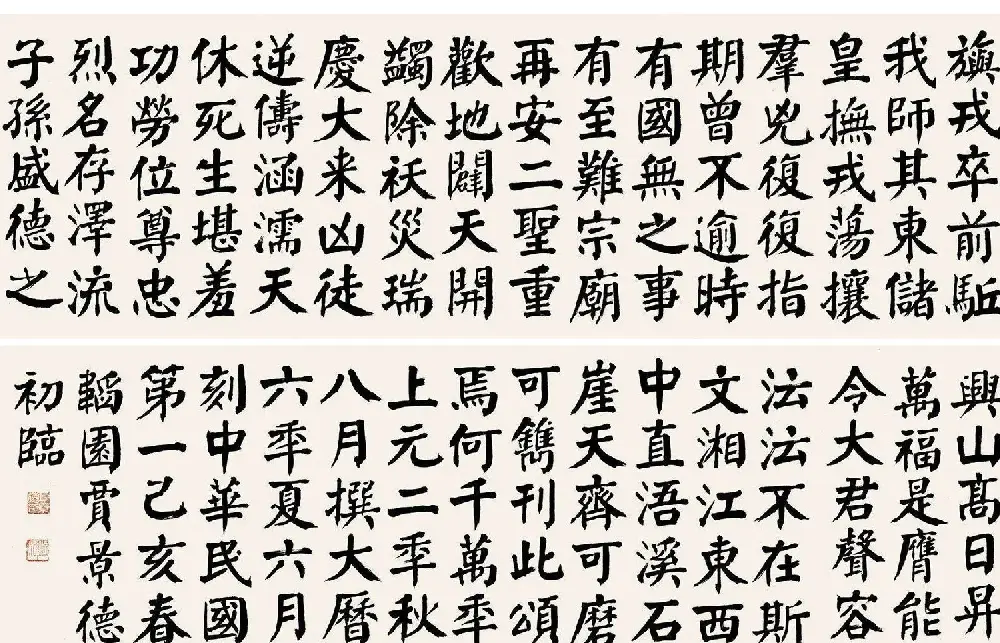 旟戎卒前駈
我師其東儲
皇撫戎蕩攘
羣兇復復指
期曾不逾時
有國無之事
有至難宗廟
再安二聖重
歡地闢天開
蠲除祅災瑞
慶大来凶徒
逆儔涵濡天
休死生堪羞
功勞位尊忠
烈名存澤流
子孫盛德之
興山髙日昇
萬福是膺能
令大君聲容
沄沄不在斯
文湘江東西
中直浯溪石
崖天齊可磨
可鐫刊此頌
焉何千萬秊
上元二秊秋
八月撰大曆
六秊夏六月
刻中華民國
第一己亥春
韜園賈景德
初臨